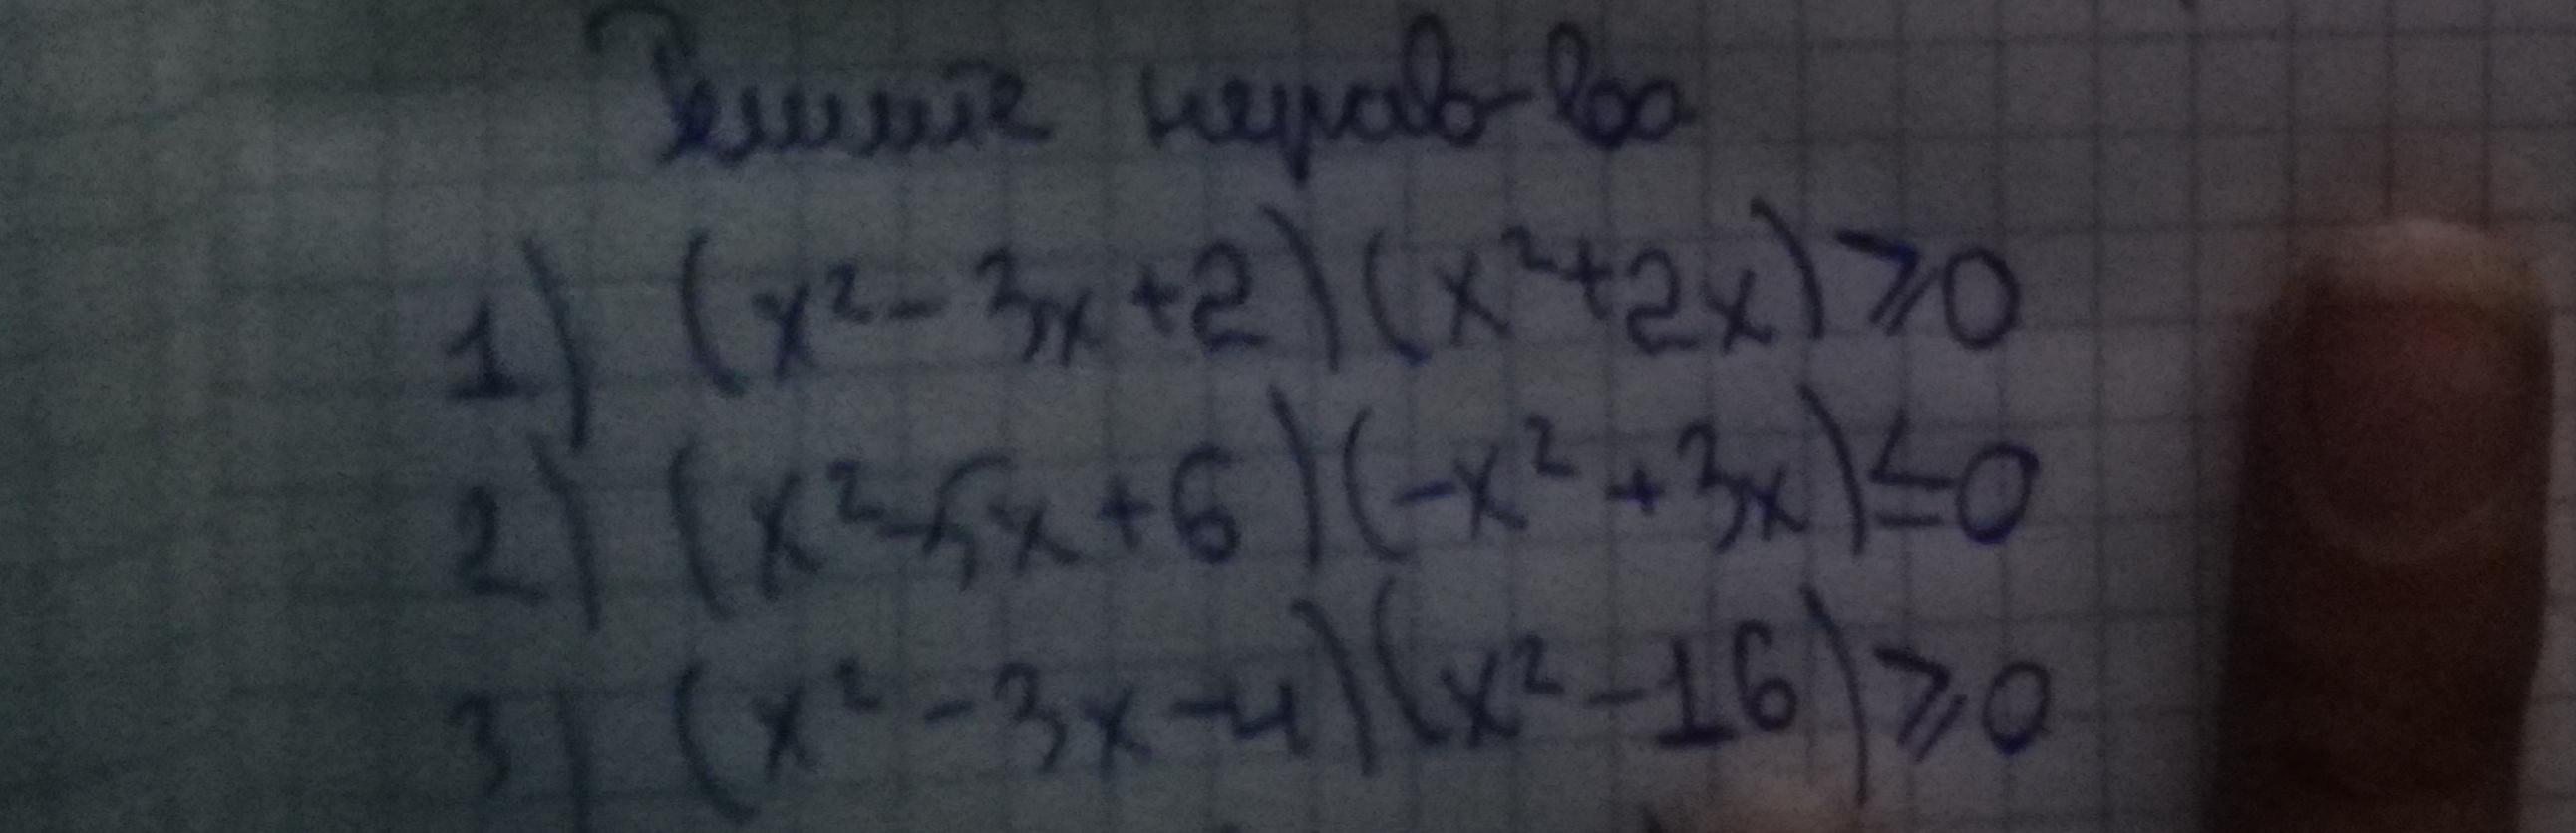 Решите нерав-ва
1) (x² - 3x + 2)(x² + 2x) ⩾ 0
2) (x² - 5x + 6)(-x² + 3x) ≤ 0
3) (x² - 3x - 4)(x² - 16) ⩾ 0